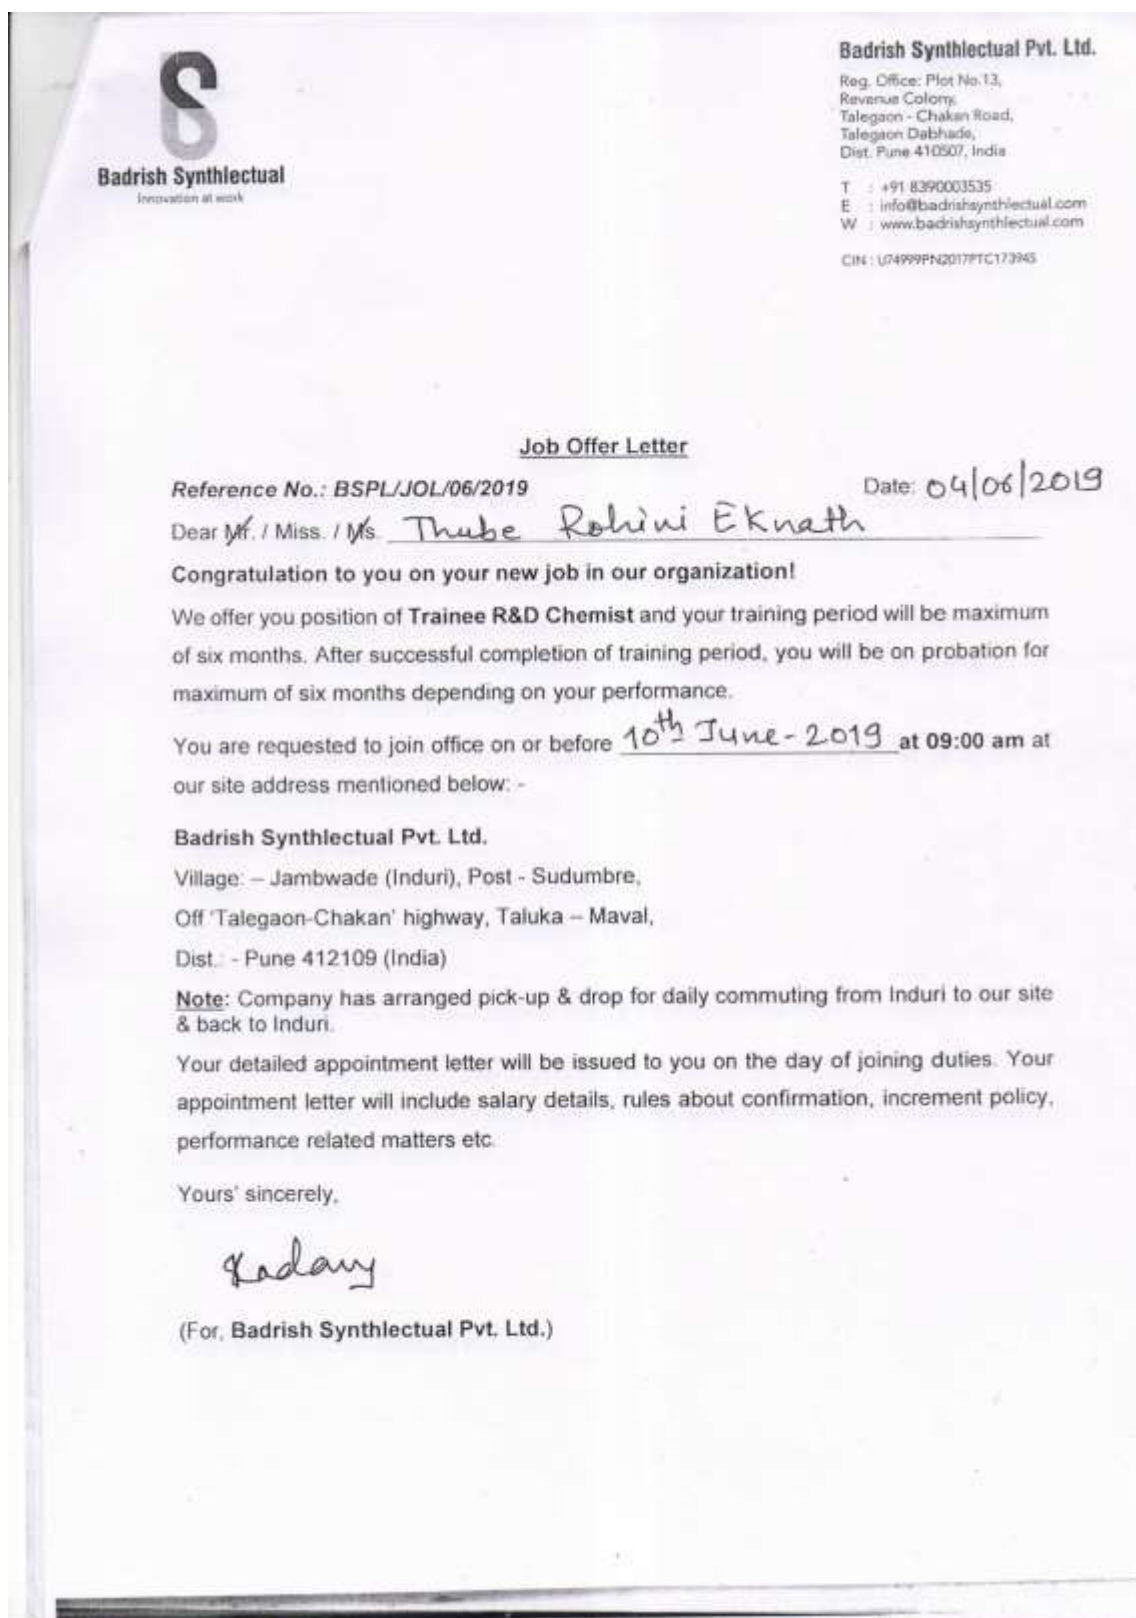 Badrish Synthlectual
Innovation at work
Badrish Synthlectual Pvt. Ltd.
Reg. Office: Plot No.13,
Revenue Colony,
Talegaon - Chakan Road,
Talegaon Dabhade,
Dist. Pune 410507, India
T : +91 8390003535
E : info@badrishsynthlectual.com
W : www.badrishsynthlectual.com
CIN : U74999PN2017PTC173945
Job Offer Letter
Reference No.: BSPL/JOL/06/2019 Date: 04/06/2019
Dear Mr. / Miss. / Ms. Thube Rohini Eknath
Congratulation to you on your new job in our organization!
We offer you position of Trainee R&D Chemist and your training period will be maximum
of six months. After successful completion of training period, you will be on probation for
maximum of six months depending on your performance.
You are requested to join office on or before 10th June-2019 at 09:00 am at
our site address mentioned below: -
Badrish Synthlectual Pvt. Ltd.
Village: – Jambwade (Induri), Post - Sudumbre,
Off 'Talegaon-Chakan' highway, Taluka – Maval,
Dist.: - Pune 412109 (India)
Note: Company has arranged pick-up & drop for daily commuting from Induri to our site
& back to Induri.
Your detailed appointment letter will be issued to you on the day of joining duties. Your
appointment letter will include salary details, rules about confirmation, increment policy,
performance related matters etc.
Yours' sincerely,
(For, Badrish Synthlectual Pvt. Ltd.)